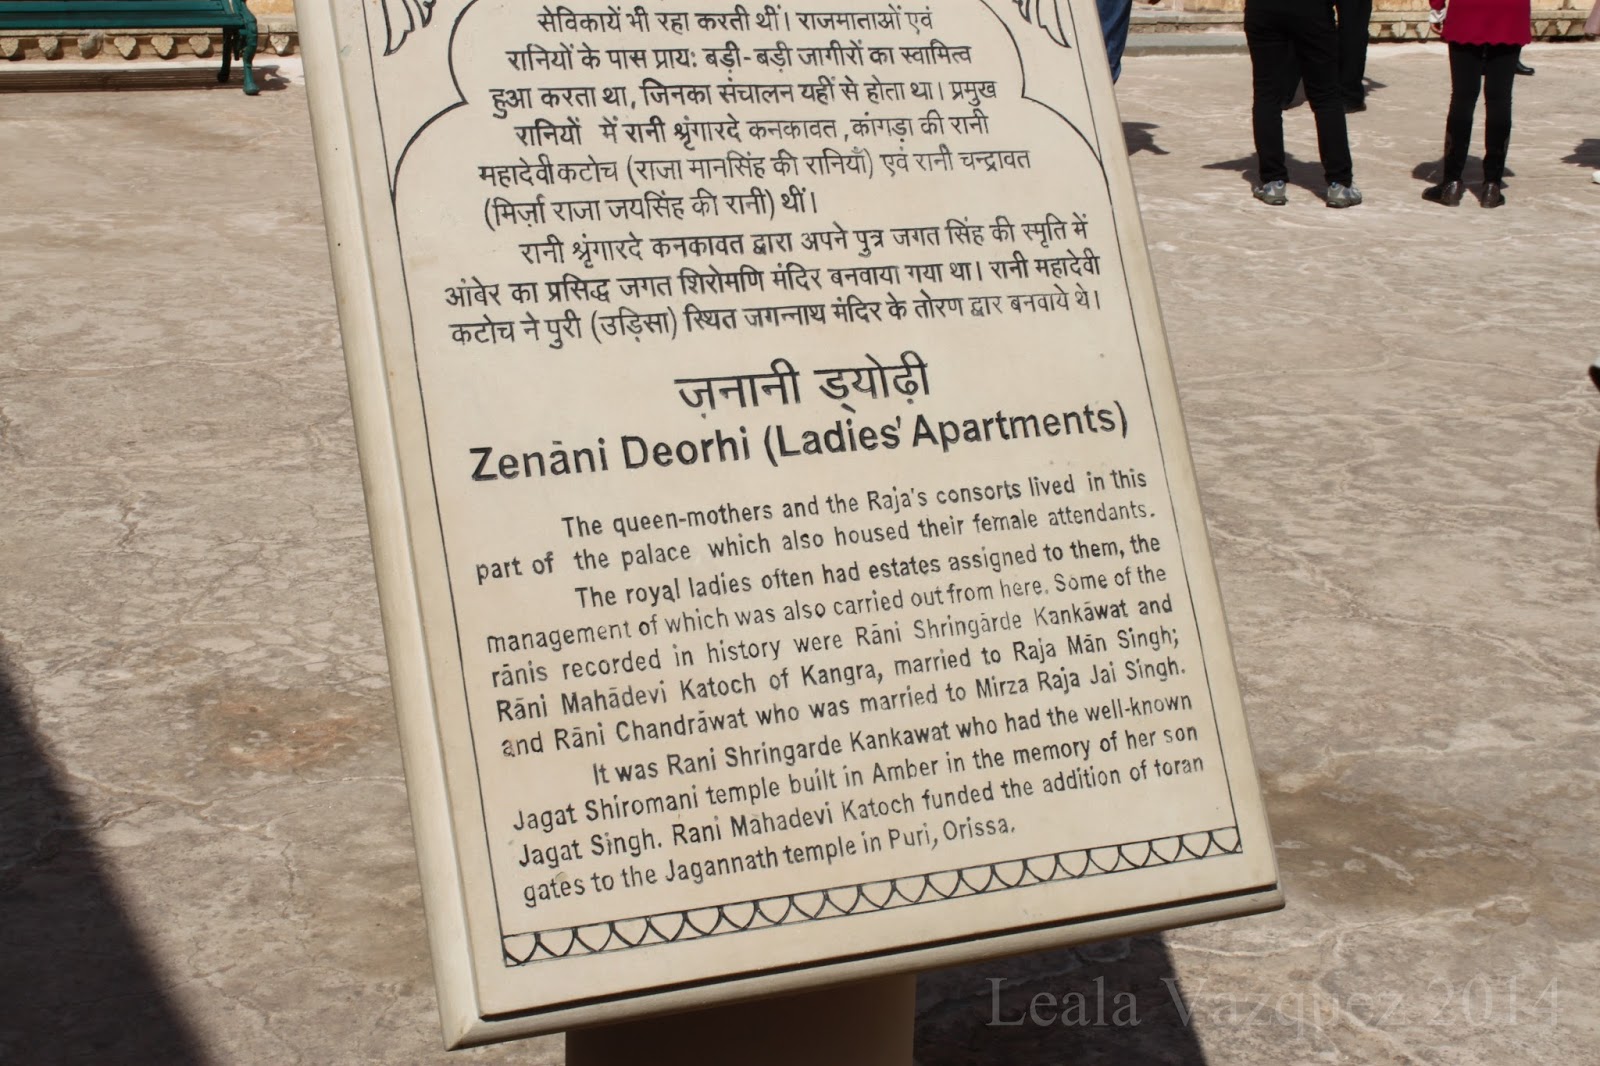 सेविकायें भी रहा करती थीं। राजमाताओं एवं
रानियों के पास प्राय: बड़ी-बड़ी जागीरों का स्वामित्व
हुआ करता था, जिनका संचालन यहीं से होता था। प्रमुख
रानियों में रानी श्रृंगारदे कनकावत, कांगड़ा की रानी
महादेवी कटोच (राजा मानसिंह की रानियाँ) एवं रानी चन्द्रावत
(मिर्ज़ा राजा जयसिंह की रानी) थीं।
रानी श्रृंगारदे कनकावत द्वारा अपने पुत्र जगत सिंह की स्मृति में
आंबेर का प्रसिद्ध जगत शिरोमणि मंदिर बनवाया गया था। रानी महादेवी
कटोच ने पुरी (उड़िसा) स्थित जगन्नाथ मंदिर के तोरण द्वार बनवाये थे।
ज़नानी ड्योढ़ी
Zenāni Deorhi (Ladies' Apartments)
The queen-mothers and the Raja's consorts lived in this
part of the palace which also housed their female attendants.
The royal ladies often had estates assigned to them, the
management of which was also carried out from here. Some of the
rānis recorded in history were Rāni Shringārde Kankāwat and
Rāni Mahādevi Katoch of Kangra, married to Raja Mān Singh;
and Rāni Chandrāwat who was married to Mirza Raja Jai Singh.
It was Rani Shringarde Kankawat who had the well-known
Jagat Shiromani temple built in Amber in the memory of her son
Jagat Singh. Rani Mahadevi Katoch funded the addition of toran
gates to the Jagannath temple in Puri, Orissa.
Leala Vazquez 2014